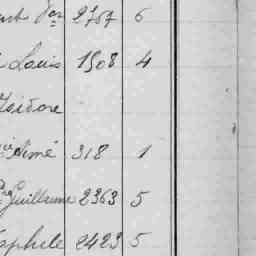 2767 6
Louis 1508 4
Isidore
Aimé 318 1
Guillaume 2363 5
ophile 2423 5